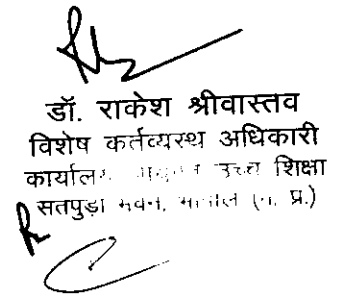 डॉ. राकेश श्रीवास्तव
विशेष कर्तव्यस्थ अधिकारी
कार्यालय उच्च शिक्षा
सतपुड़ा भवन, प्र.)